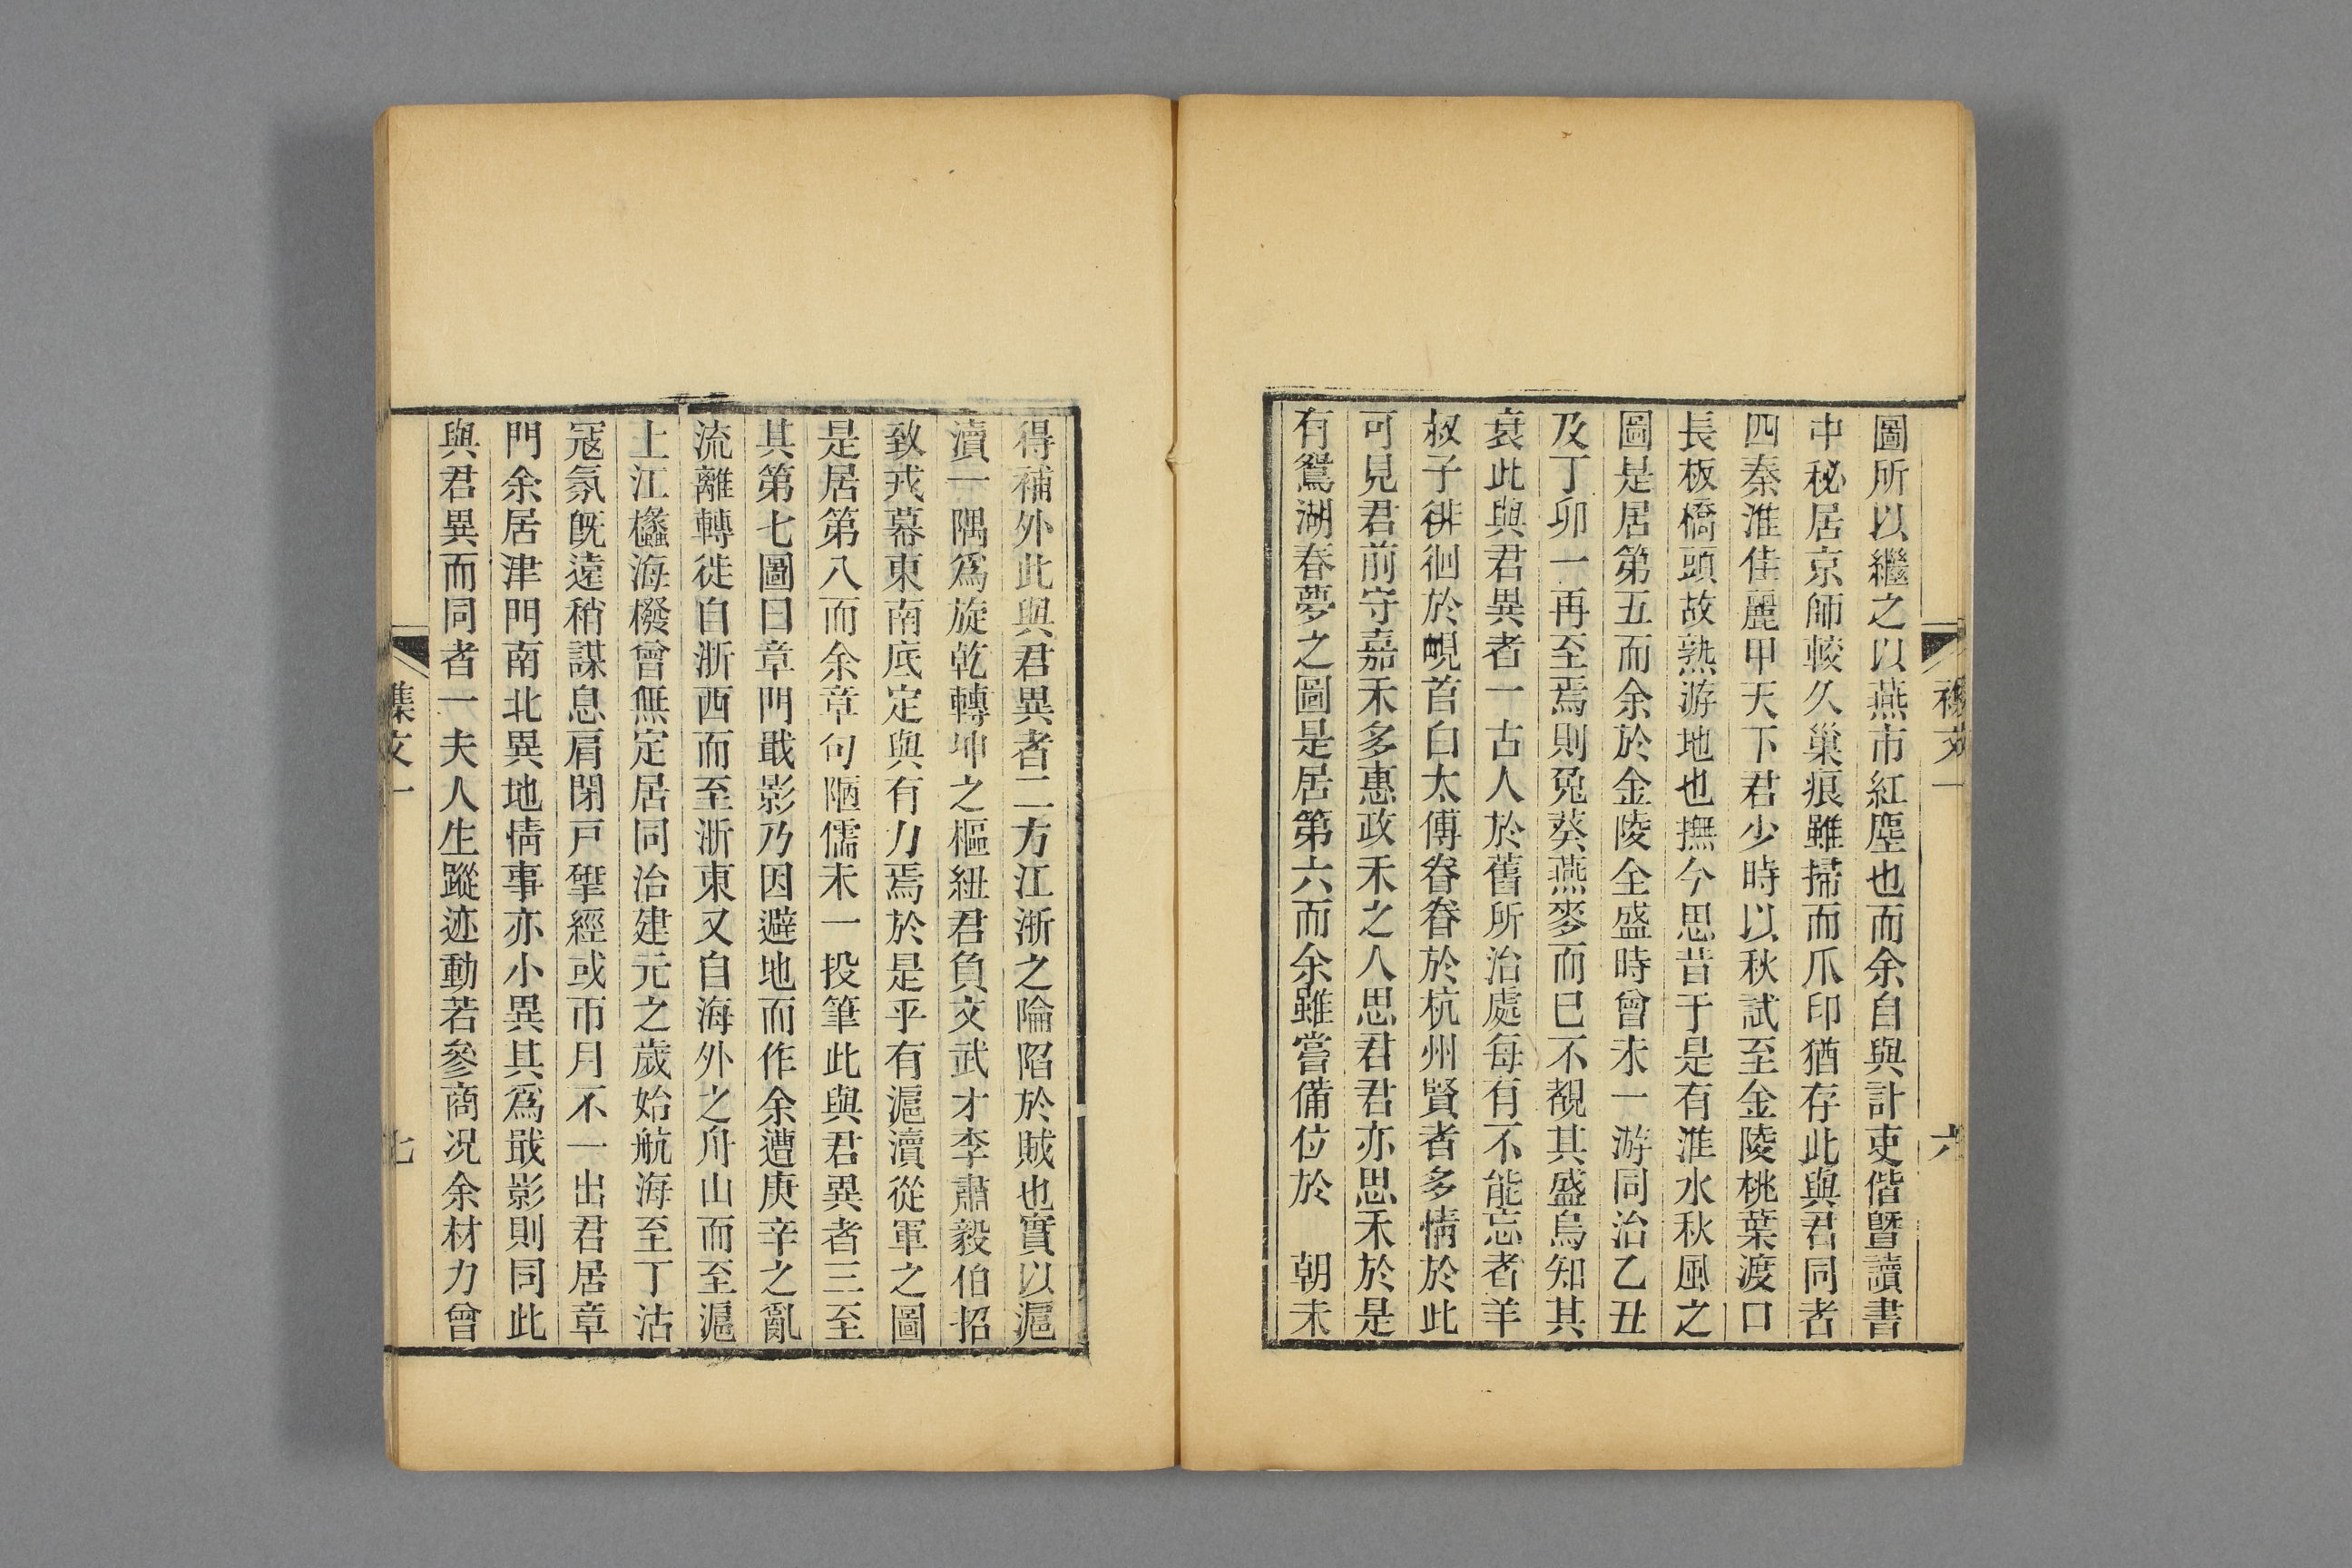 圖所以繼之以燕市紅塵也而余自與計吏偕曁讀書
中秘居京師較久巢痕雖掃而爪印猶存此與君同者
四秦淮佳麗甲天下君少時以秋試至金陵桃葉渡口
長板橋頭故熟游地也撫今思昔于是有淮水秋風之
圖是居第五而余於金陵全盛時曾未一游同治乙丑
及丁卯一再至焉則兔葵燕麥而已不覩其盛烏知其
衰此與君異者一古人於舊所治處每有不能忘者羊
叔子徘徊於峴首白太傅眷眷於杭州賢者多情於此
可見君前守嘉禾多惠政禾之人思君君亦思禾於是
有鴛湖春夢之圖是居第六而余雖嘗備位於　朝未
六
得補外此與君異者二方江浙之陯陷於賊也實以滬
瀆一隅爲旋乾轉坤之樞紐君負文武才李肅毅伯招
致戎幕東南底定與有力焉於是乎有滬瀆從軍之圖
是居第八而余章句陋儒未一投筆此與君異者三至
其第七圖曰章門戢影乃因避地而作余遭庚辛之亂
流離轉徙自浙西而至浙東又自海外之舟山而至滬
上江欚海橃曾無定居同治建元之歲始航海至丁沽
冦氛旣遠稍謀息肩閉戸揅經或帀月不一出君居章
門余居津門南北異地情事亦小異其爲戢影則同此
與君異而同者一夫人生蹤迹動若參商况余材力曾
集文一
七